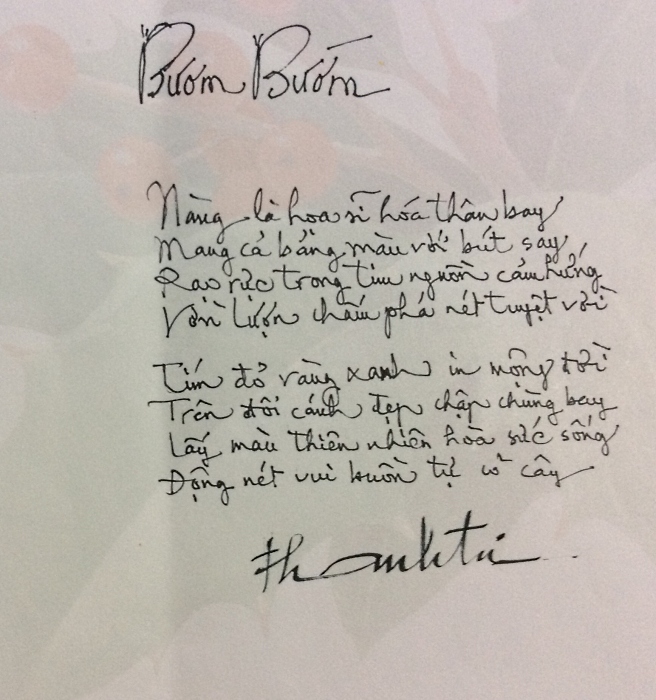 Bướm Bướm
Nàng là hoa sĩ hóa thân bay
Mang cả bảng màu với bút say
Rạo rực trong tim nguồn cảm hứng
Vờn lượn chấm phá nét tuyệt vời
Tím đỏ vàng xanh in mộng đời
Trên đôi cánh đẹp chập chùng bay
Lấy màu thiên nhiên hòa sức sống
Động nét vui buồn tự cỏ cây
thanhtú